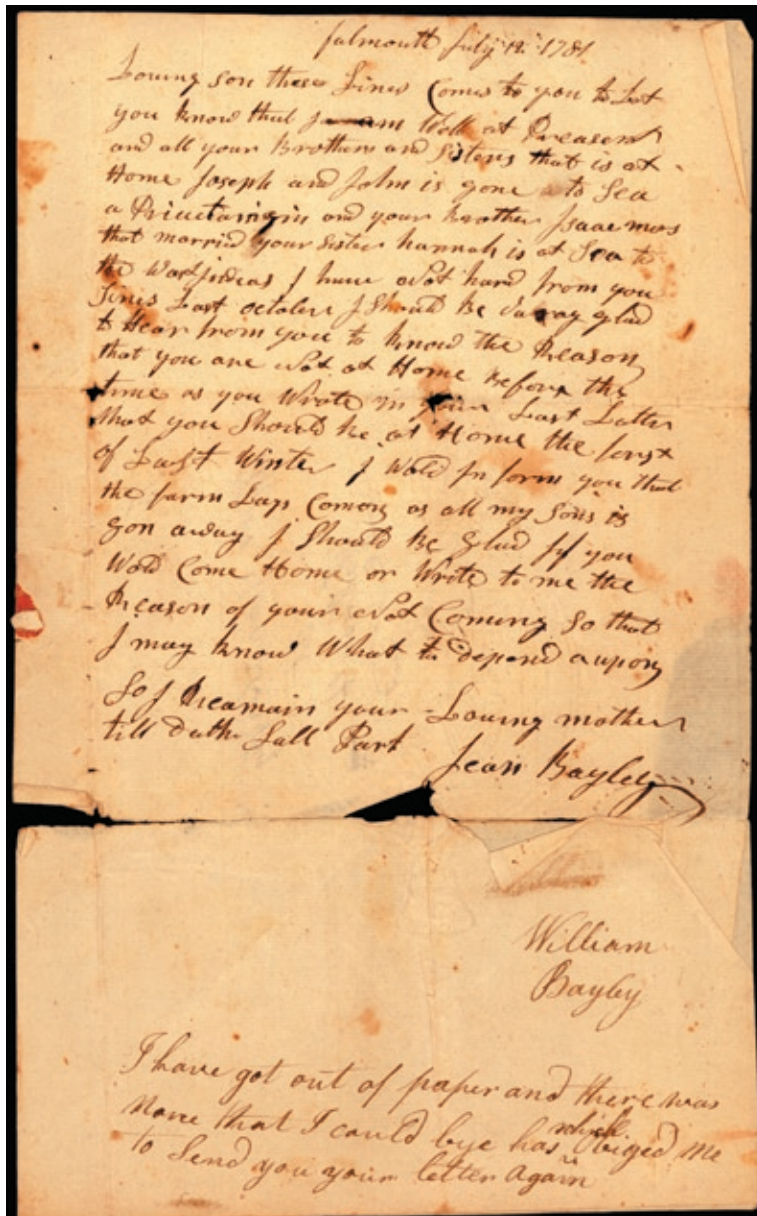 falmouth July 12 1781
Loving son these Lines Comes to you to Let
you know that I am Well at Preasent
and all your Brothers and Sisters that is at
Home Joseph and John is gone to Sea
a Privetarigin and your Brother Isaac mos
that married your Sister hannah is at Sea to
the Wastindeas I have Not hard from you
Sines Last october I Should be varay glad
to Hear from you to know the Reason
that you are Not at Home Before the
time as you Wrote in your Last Latter
that you Should be at Home the forst
of Last Winter I Wold In form you that
the farm Lays Comon as all my Sons is
gon away I Should Be Glad If you
Wold Come Home or Write to me the
Reason of your Not Coming So that
I may know What to depend a upon
So I Reamain your Loving mother
till Dath Sall Part
Jean Bayley
William
Bayley
I have got out of paper and there was
which
none that I could bye has obiged me
to Send you your letter Again